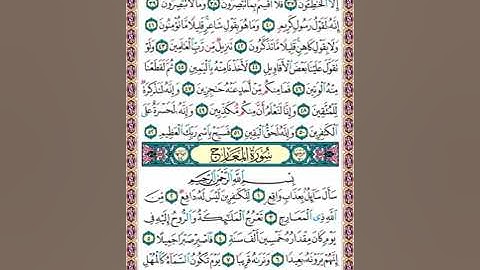 إِلَّا ٱلْخَٰطِـُٔونَ ٣٧ فَلَآ أُقْسِمُ بِمَا تُبْصِرُونَ ٣٨ وَمَا لَا تُبْصِرُونَ ٣٩
إِنَّهُۥ لَقَوْلُ رَسُولٍ كَرِيمٍ ٤٠ وَمَا هُوَ بِقَوْلِ شَاعِرٍ قَلِيلًا مَّا تُؤْمِنُونَ ٤١
وَلَا بِقَوْلِ كَاهِنٍ قَلِيلًا مَّا تَذَكَّرُونَ ٤٢ تَنزِيلٌ مِّن رَّبِّ ٱلْعَٰلَمِينَ ٤٣ وَلَوْ
تَقَوَّلَ عَلَيْنَا بَعْضَ ٱلْأَقَاوِيلِ ٤٤ لَأَخَذْنَا مِنْهُ بِٱلْيَمِينِ ٤٥ ثُمَّ لَقَطَعْنَا
مِنْهُ ٱلْوَتِينَ ٤٦ فَمَا مِنكُم مِّنْ أَحَدٍ عَنْهُ حَٰجِزِينَ ٤٧ وَإِنَّهُۥ لَتَذْكِرَةٌ
لِّلْمُتَّقِينَ ٤٨ وَإِنَّا لَنَعْلَمُ أَنَّ مِنكُم مُّكَذِّبِينَ ٤٩ وَإِنَّهُۥ لَحَسْرَةٌ عَلَى
ٱلْكَٰفِرِينَ ٥٠ وَإِنَّهُۥ لَحَقُّ ٱلْيَقِينِ ٥١ فَسَبِّحْ بِٱسْمِ رَبِّكَ ٱلْعَظِيمِ ٥٢
سُورَةُ المَعَارِجِ
بِسْمِ ٱللَّهِ ٱلرَّحْمَٰنِ ٱلرَّحِيمِ
سَأَلَ سَآئِلٌۢ بِعَذَابٍ وَاقِعٍ ١ لِّلْكَٰفِرِينَ لَيْسَ لَهُۥ دَافِعٌ ٢ مِّنَ
ٱللَّهِ ذِى ٱلْمَعَارِجِ ٣ تَعْرُجُ ٱلْمَلَٰٓئِكَةُ وَٱلرُّوحُ إِلَيْهِ فِى
يَوْمٍ كَانَ مِقْدَارُهُۥ خَمْسِينَ أَلْفَ سَنَةٍ ٤ فَٱصْبِرْ صَبْرًا جَمِيلًا ٥
إِنَّهُمْ يَرَوْنَهُۥ بَعِيدًا ٦ وَنَرَىٰهُ قَرِيبًا ٧ يَوْمَ تَكُونُ ٱلسَّمَآءُ كَٱلْمُهْلِ